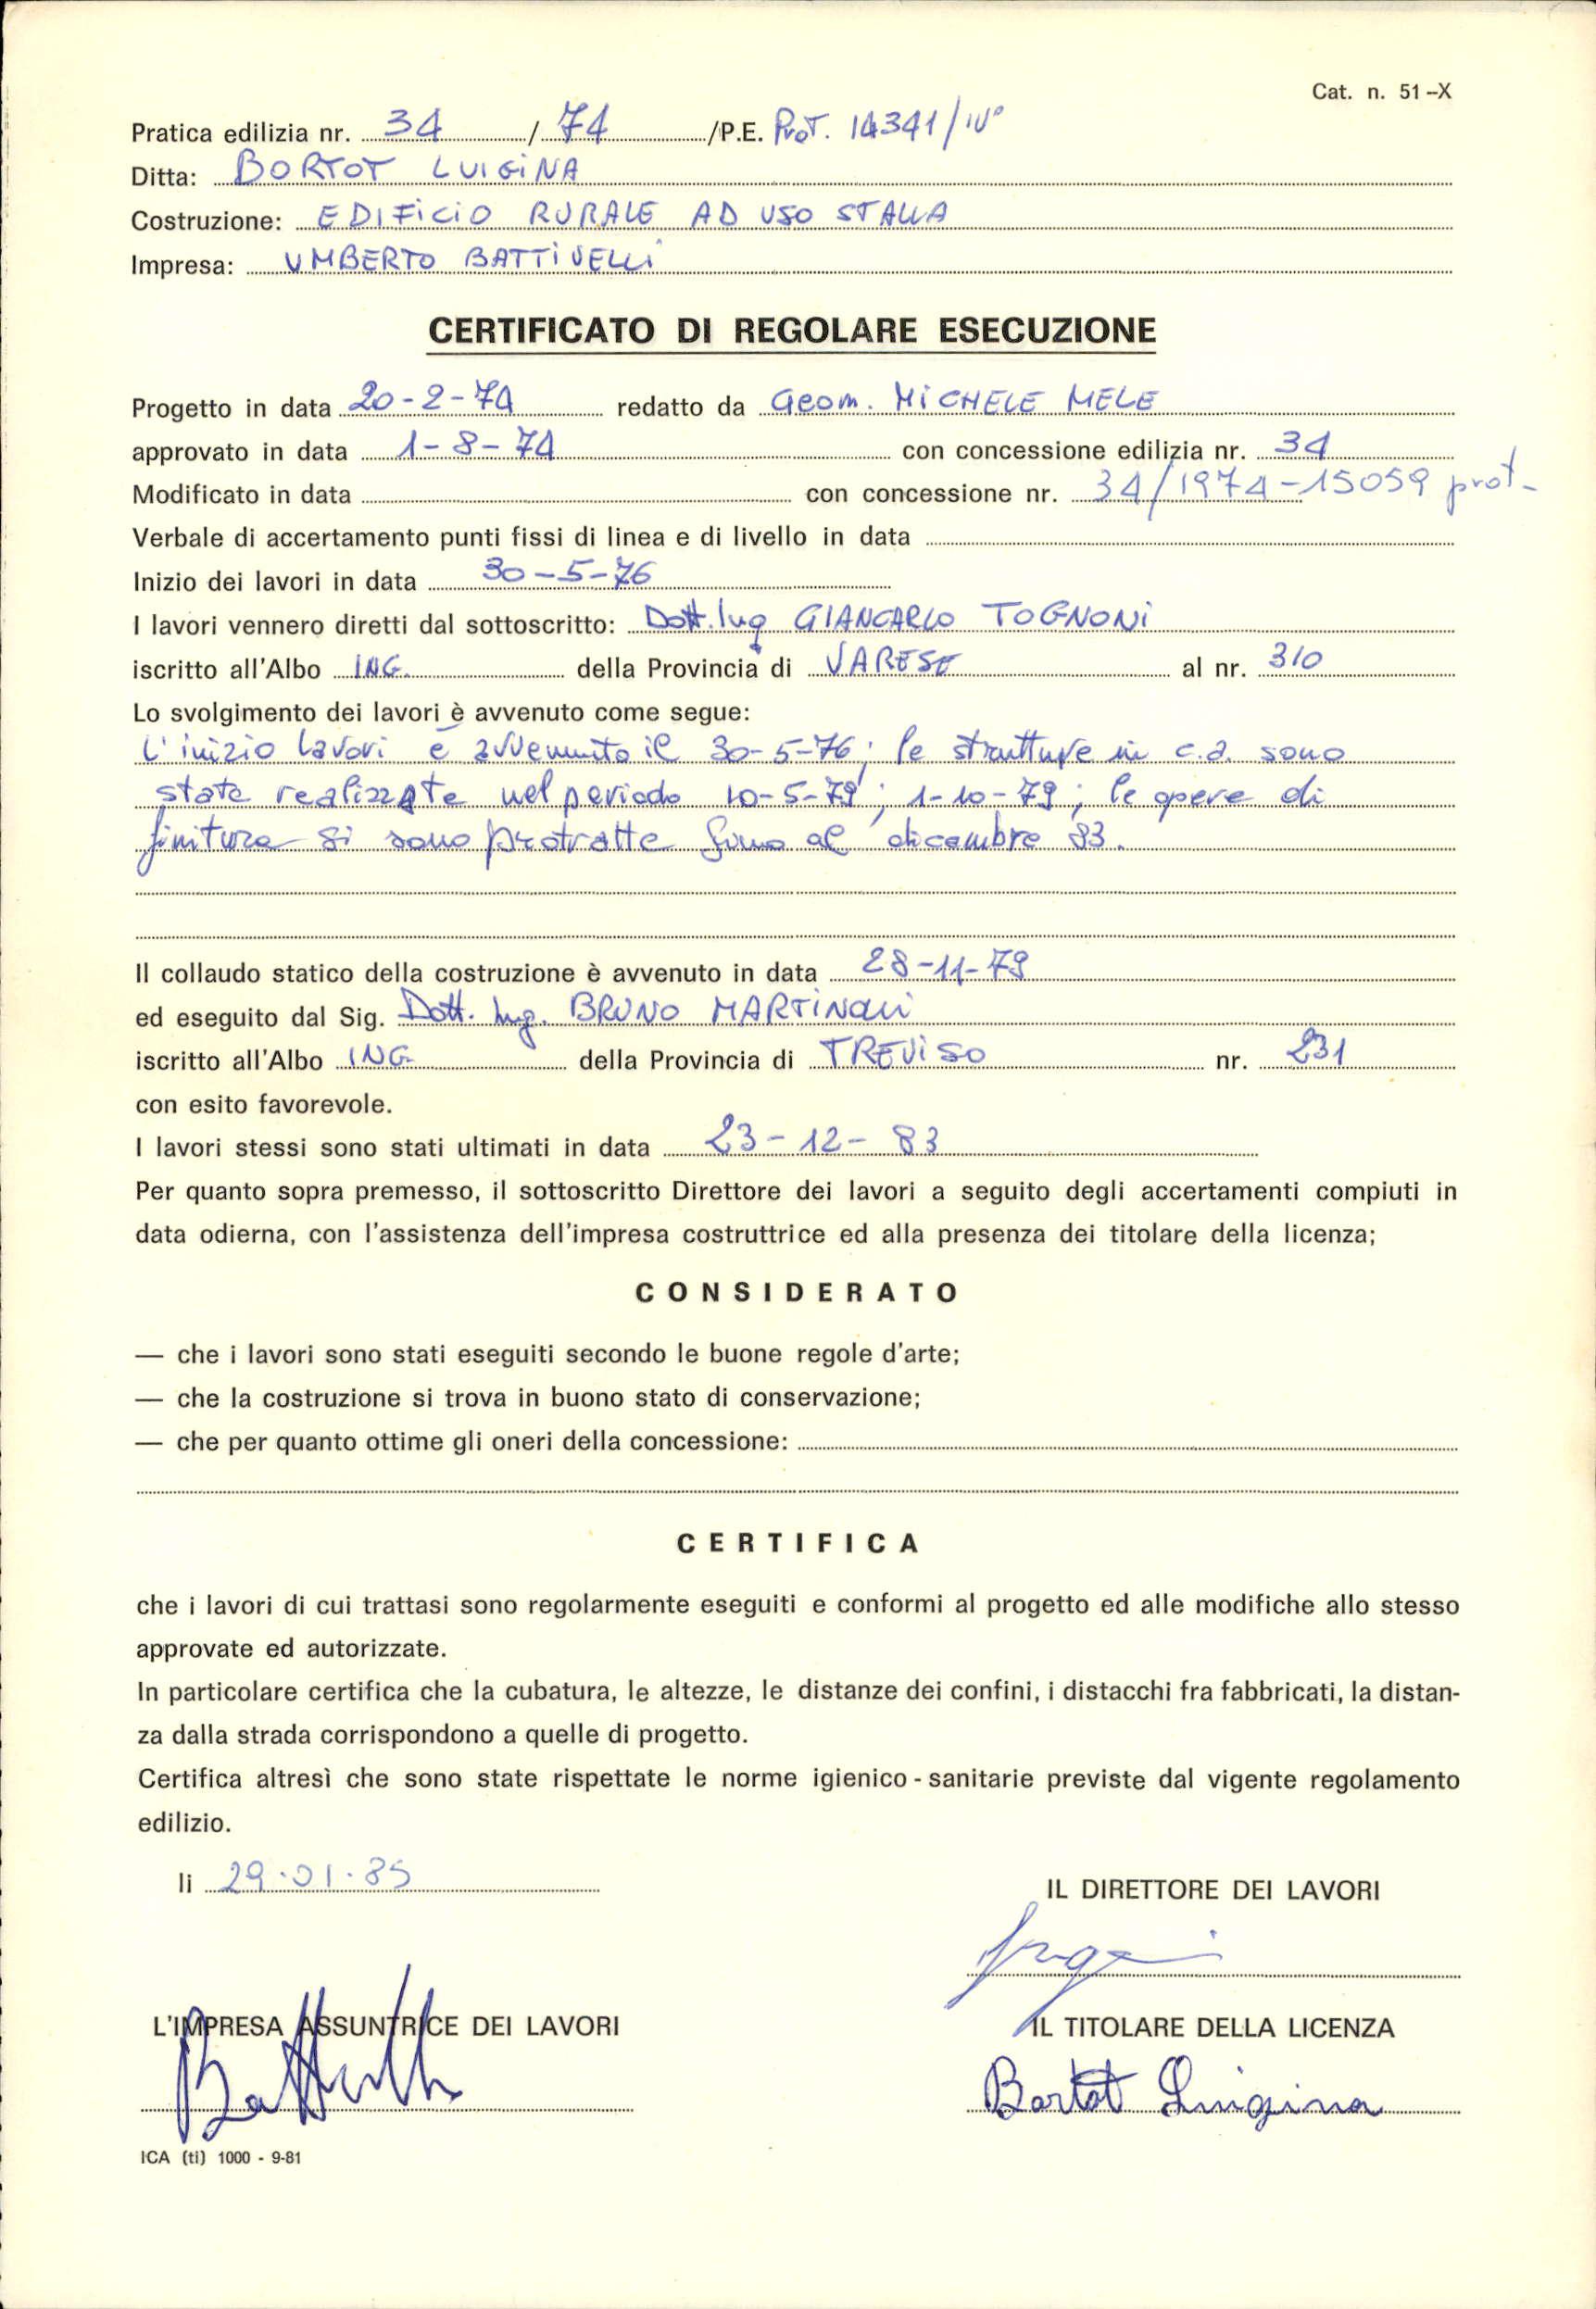 Cat. n. 51-X
Pratica edilizia nr. 34 / 74 /P.E. Prot. 14341/IV°
Ditta: BORTOT LUIGINA
Costruzione: EDIFICIO RURALE AD USO STALLA
Impresa: UMBERTO BATTIVELLI
CERTIFICATO DI REGOLARE ESECUZIONE
Progetto in data 20-2-74 redatto da Geom. MICHELE MELE
approvato in data 1-8-74 con concessione edilizia nr. 34
Modificato in data con concessione nr. 34/1974-15059 prot-
Verbale di accertamento punti fissi di linea e di livello in data
Inizio dei lavori in data 30-5-76
I lavori vennero diretti dal sottoscritto: Dott. Ing GIANCARLO TOGNONI
iscritto all'Albo ING. della Provincia di VARESE al nr. 310
Lo svolgimento dei lavori è avvenuto come segue:
L'inizio lavori è avvenuto il 30-5-76; le strutture in c.a. sono
state realizzate nel periodo 10-5-79; 1-10-79; le opere di
finitura si sono protratte fino al dicembre 83.
Il collaudo statico della costruzione è avvenuto in data 28-11-79
ed eseguito dal Sig. Dott. Ing. BRUNO MARTINOLLI
iscritto all'Albo ING della Provincia di TREVISO nr. 231
con esito favorevole.
I lavori stessi sono stati ultimati in data 23-12-83
Per quanto sopra premesso, il sottoscritto Direttore dei lavori a seguito degli accertamenti compiuti in
data odierna, con l'assistenza dell'impresa costruttrice ed alla presenza dei titolare della licenza;
CONSIDERATO
— che i lavori sono stati eseguiti secondo le buone regole d'arte;
— che la costruzione si trova in buono stato di conservazione;
— che per quanto ottime gli oneri della concessione:
CERTIFICA
che i lavori di cui trattasi sono regolarmente eseguiti e conformi al progetto ed alle modifiche allo stesso
approvate ed autorizzate.
In particolare certifica che la cubatura, le altezze, le distanze dei confini, i distacchi fra fabbricati, la distan-
za dalla strada corrispondono a quelle di progetto.
Certifica altresì che sono state rispettate le norme igienico - sanitarie previste dal vigente regolamento
edilizio.
li 29.01.85
IL DIRETTORE DEI LAVORI
L'IMPRESA ASSUNTRICE DEI LAVORI
IL TITOLARE DELLA LICENZA
Bortot Luigina
ICA (ti) 1000 - 9-81